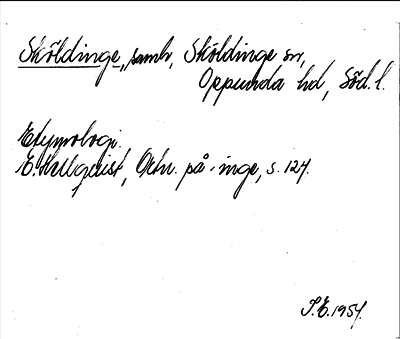 Sköldinge, samh, Sköldinge sn,
Oppunda hd, Söd. l.
Etymologi.
E. Hellquist, Ortn. på -inge, s. 127.
S.E. 1957.